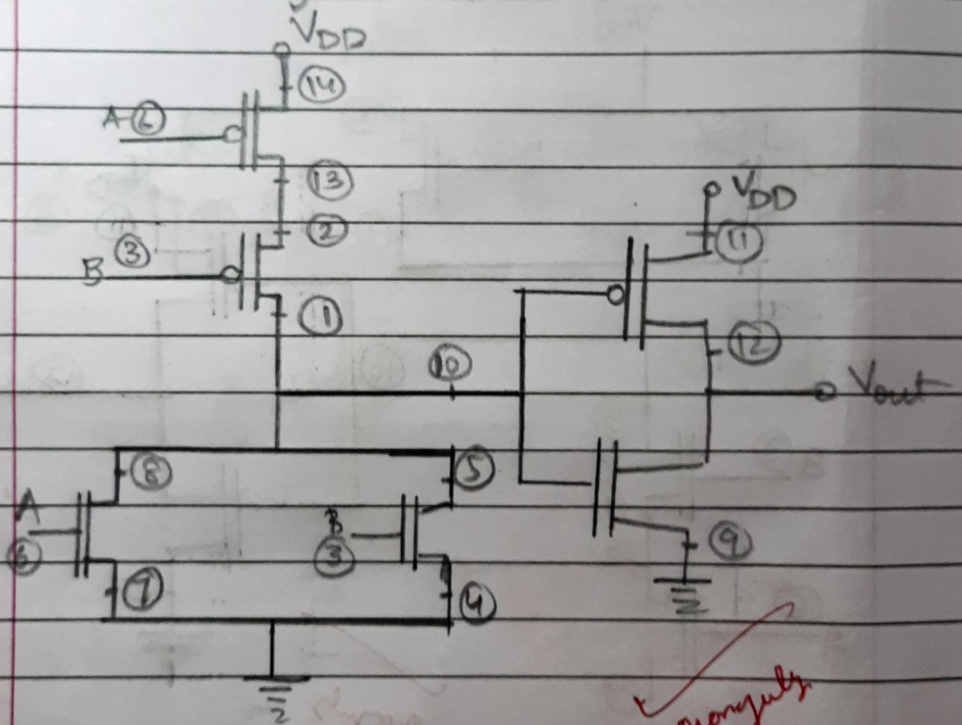 VDD
14
A 6
13
2
B 3
1
VDD
11
12
10
Vout
8
5
A
6
B
3
9
7
4